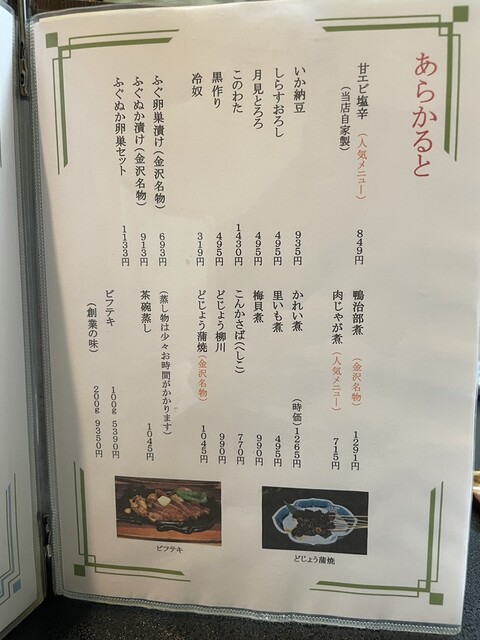 あらかると
甘エビ塩辛 (人気メニュー) 849円
(当店自家製)
いか納豆 935円
しらすおろし 495円
月見とろろ 495円
このわた 1430円
黒作り 495円
冷奴 319円
ふぐ卵巣漬け(金沢名物) 693円
ふぐぬか漬け(金沢名物) 913円
ふぐぬか卵巣セット 1133円
鴨治部煮 (金沢名物) 1291円
肉じゃが煮 (人気メニュー) 715円
かれい煮 (時価)1265円
里いも煮 495円
梅貝煮 990円
こんかさば(へしこ) 770円
どじょう柳川 990円
どじょう蒲焼(金沢名物) 1045円
(蒸し物は少々お時間がかかります)
茶碗蒸し 1045円
ビフテキ 100g 5390円
(創業の味) 200g 9350円
ビフテキ
どじょう蒲焼